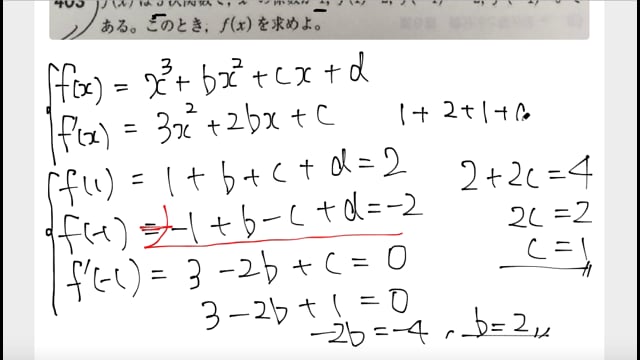 ある。このとき, f(x) を求めよ。
f(x) = x³ + bx² + cx + d
f'(x) = 3x² + 2bx + c
1 + 2 + 1 +
f(1) = 1 + b + c + d = 2
f(-1) = -1 + b - c + d = -2
f'(-1) = 3 - 2b + c = 0
3 - 2b + 1 = 0
-2b = -4, b = 2
2 + 2c = 4
2c = 2
c = 1